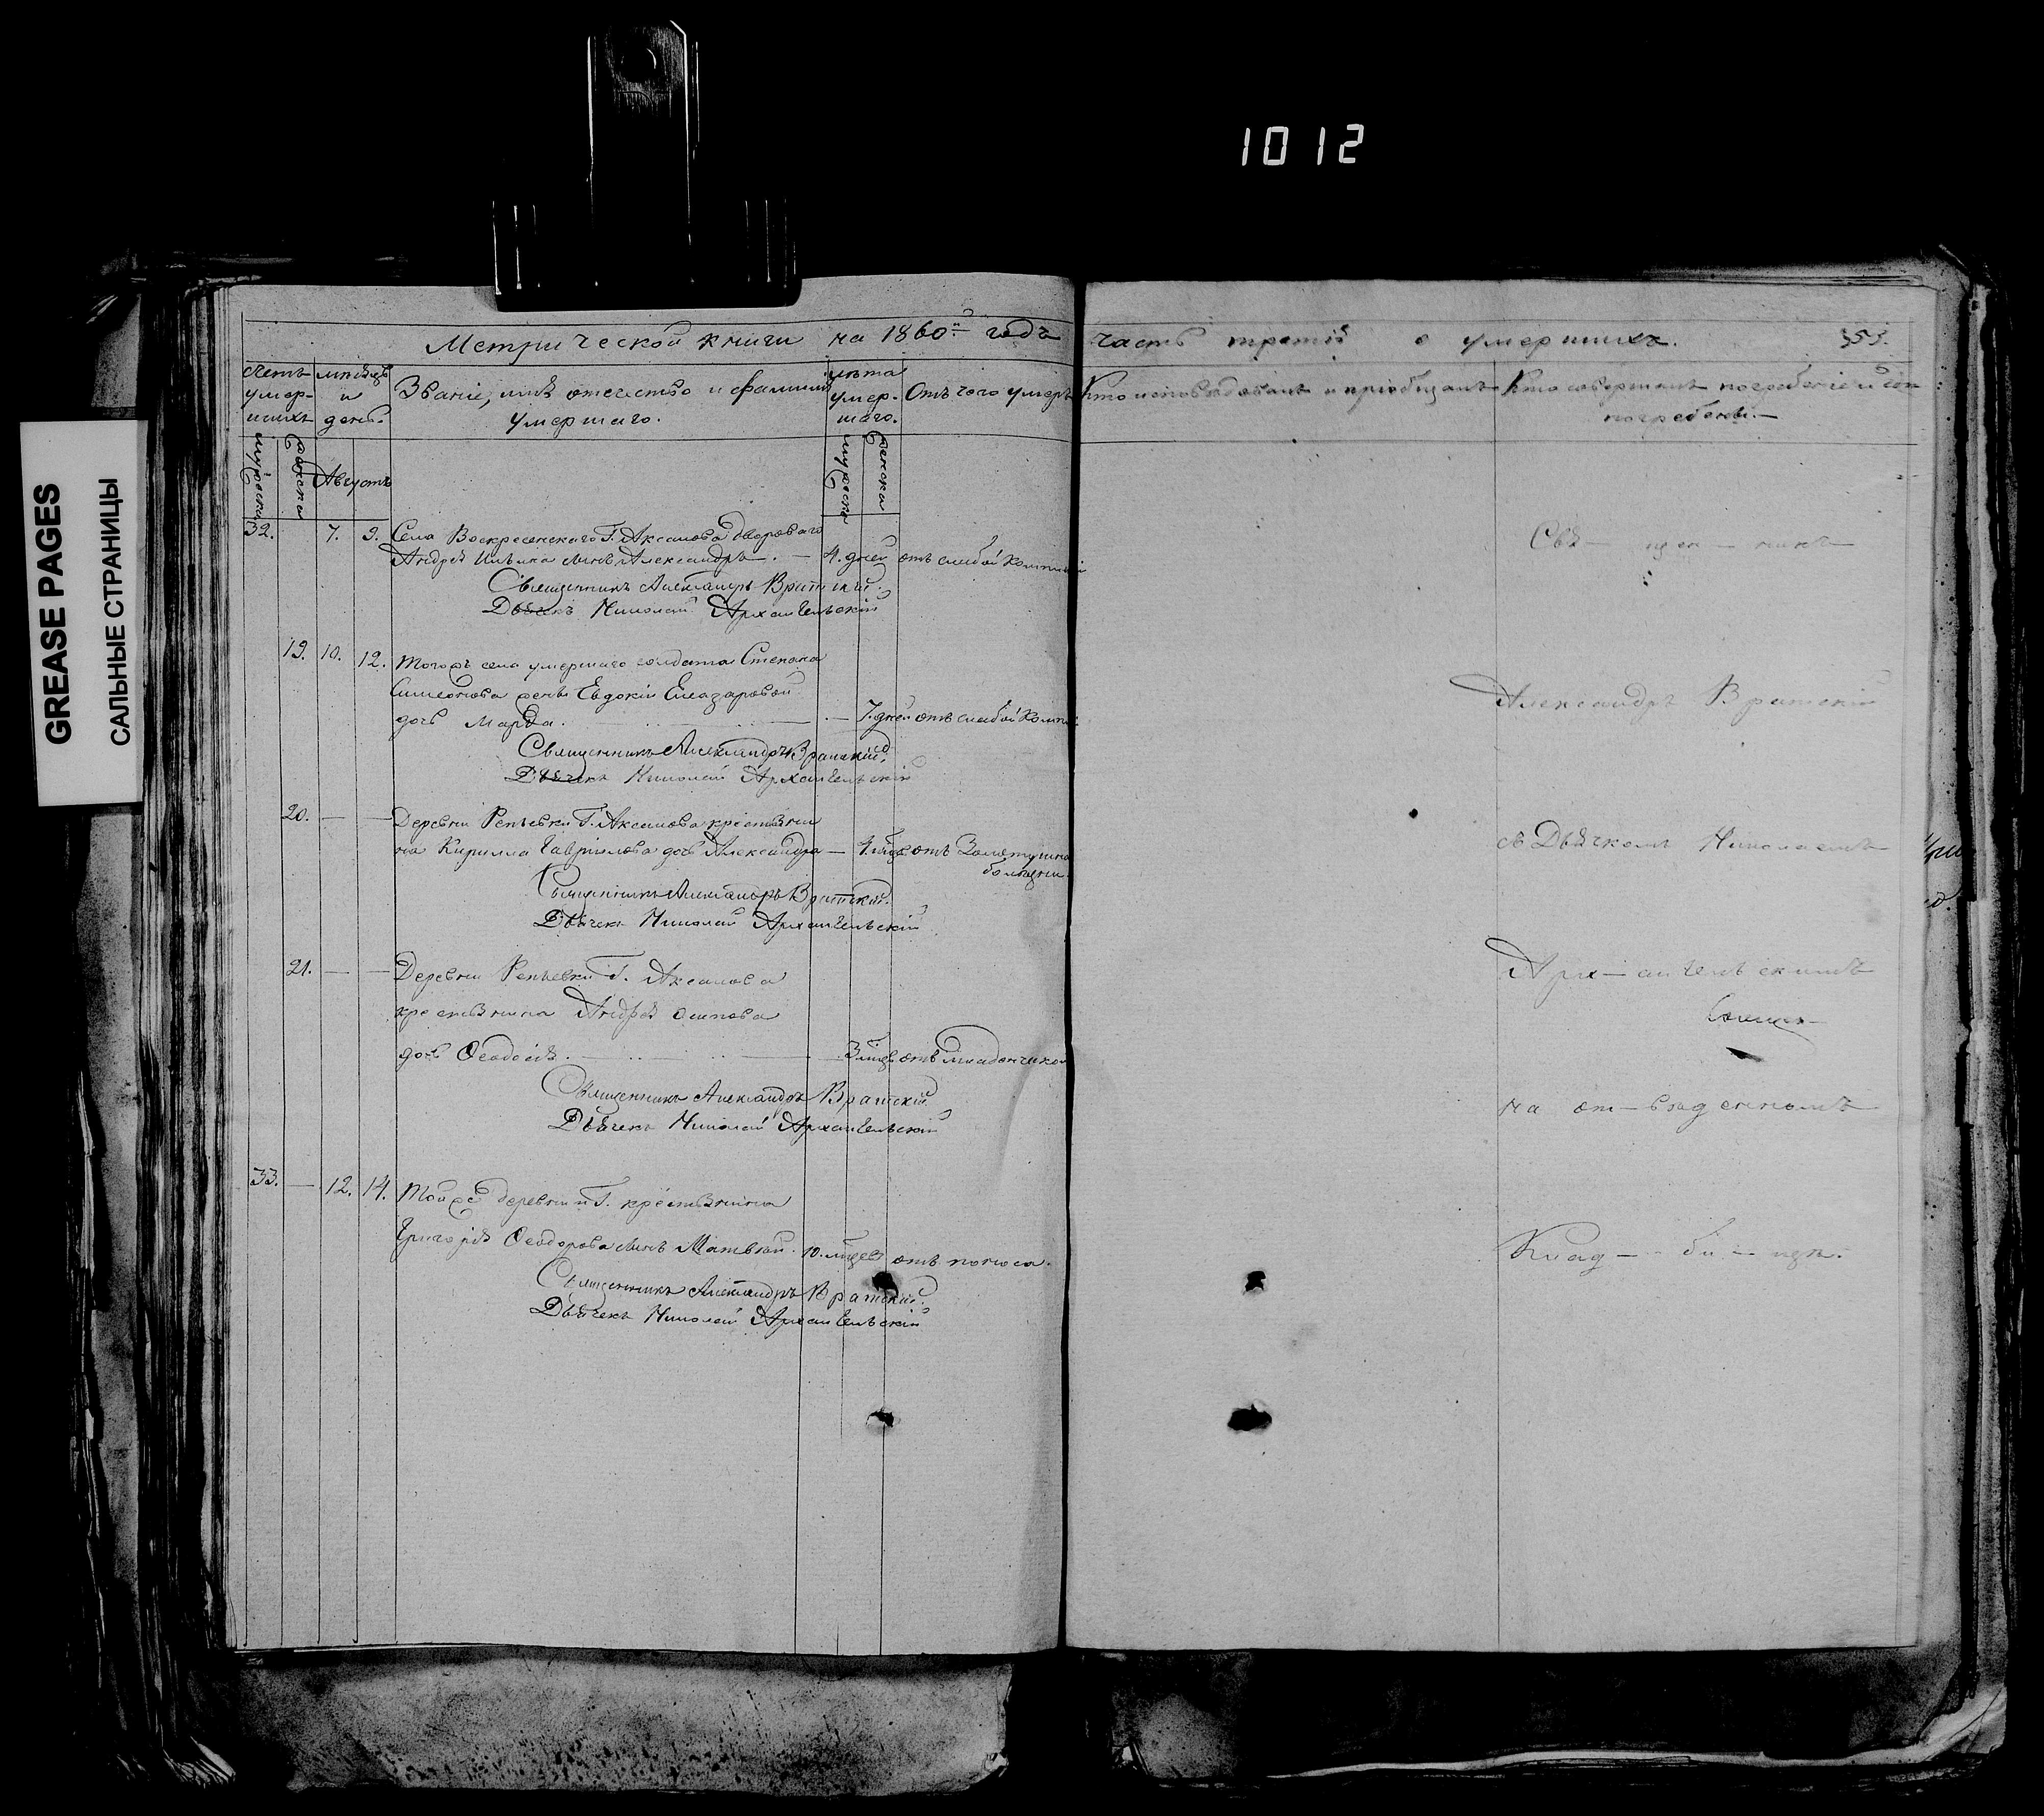 1012
GREASE PAGES
САЛЬНЫЕ СТРАНИЦЫ
Метрической книги на 1860й годъ часть третія о умершихъ. 355.
Счетъ умер-шихъ
мѣсяцъ и день.
Званіе, имя отечество и фамилія умершаго.
лѣта умер-шаго.
Отъ чего умеръ
Кто исповѣдовалъ и пріобщалъ
Кто совершалъ погребеніе и гдѣ погребены.
мужеска
женска
Августъ
мужеска
женска
32. 7. 9. Села Воскресенскаго Г. Аксакова двороваго
Андрея Ильина сынъ Александръ. — 4. дней отъ слабой
Священникъ Александръ Вратскій.
Дьячекъ Николай Архангельскій
19. 10. 12. Тогожъ села умершаго солдата Степана
Симеонова жены Евдокіи Елеазаровой
дочь Марѳа. — 7. дней отъ слабой
Священникъ Александръ Вратскій.
Дьячекъ Николай Архангельскій
20. — — Деревни Репьевки Г. Аксакова крестьяни
на Кирилла Гаврилова дочь Александра — 4. мѣс. отъ
болѣзни.
Священникъ Александръ Вратскій.
Дьячекъ Николай Архангельскій
21. — — Деревни Репьевки Г. Аксакова
крестьянина Андрея Осипова
дочь Ѳеодосія. — 3 мѣс. отъ младенческой
Священникъ Александръ Вратскій
Дьячекъ Николай Архангельскій
33. — 12. 14. Тойже деревни Г. крестьянина
Григорія Ѳеодорова сынъ Матвѣй. 10. мѣсяцевъ отъ поноса.
Священникъ Александръ Вратскій.
Дьячекъ Николай Архангельскій
Свя— щен — никъ
Александръ Вратскій
съ Дьячкомъ Николаемъ
Арх — ангельскимъ
на от—веденномъ
Клад — би — щѣ.